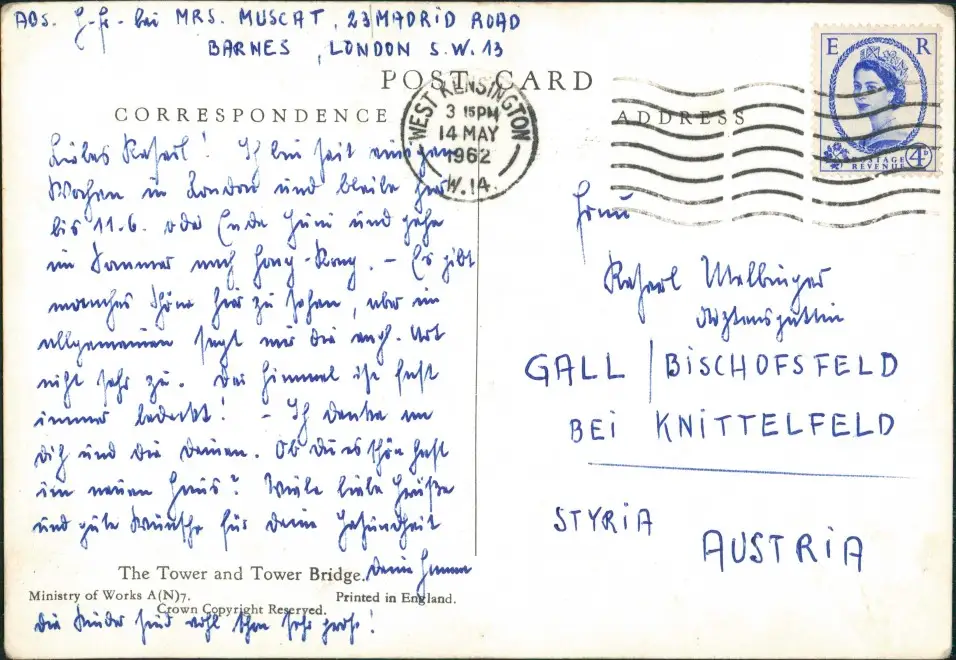 ABS. H-Fr. bei MRS. MUSCAT, 23 MADRID ROAD
BARNES, LONDON S.W. 13
POST CARD
CORRESPONDENCE
ADDRESS
WEST KENSINGTON
3 15PM
14 MAY
1962
W.14.
E R
POSTAGE
REVENUE
4D
Liebes Reserl! Ich bin seit einigen
Wochen in London und bleibe hier
bis 11.6. oder Ende Juni und gehe
im Sommer nach Hong-Kong. – Es gibt
manches Schöne hier zu sehen, aber im
allgemeinen sagt mir die engl. Art
nicht sehr zu. Der Himmel ist fast
immer bedeckt! – Ich denke an
dich und die Deinen. Ob du es schön hast
im neuen Haus? Viele liebe Grüße
und gute Wünsche für deine Gesundheit
Deine
Die Kinder sind wohl schon sehr groß!
The Tower and Tower Bridge.
Ministry of Works A(N)7.
Printed in England.
Crown Copyright Reserved.
Frau
Reserl
GALL / BISCHOFSFELD
BEI KNITTELFELD
STYRIA
AUSTRIA